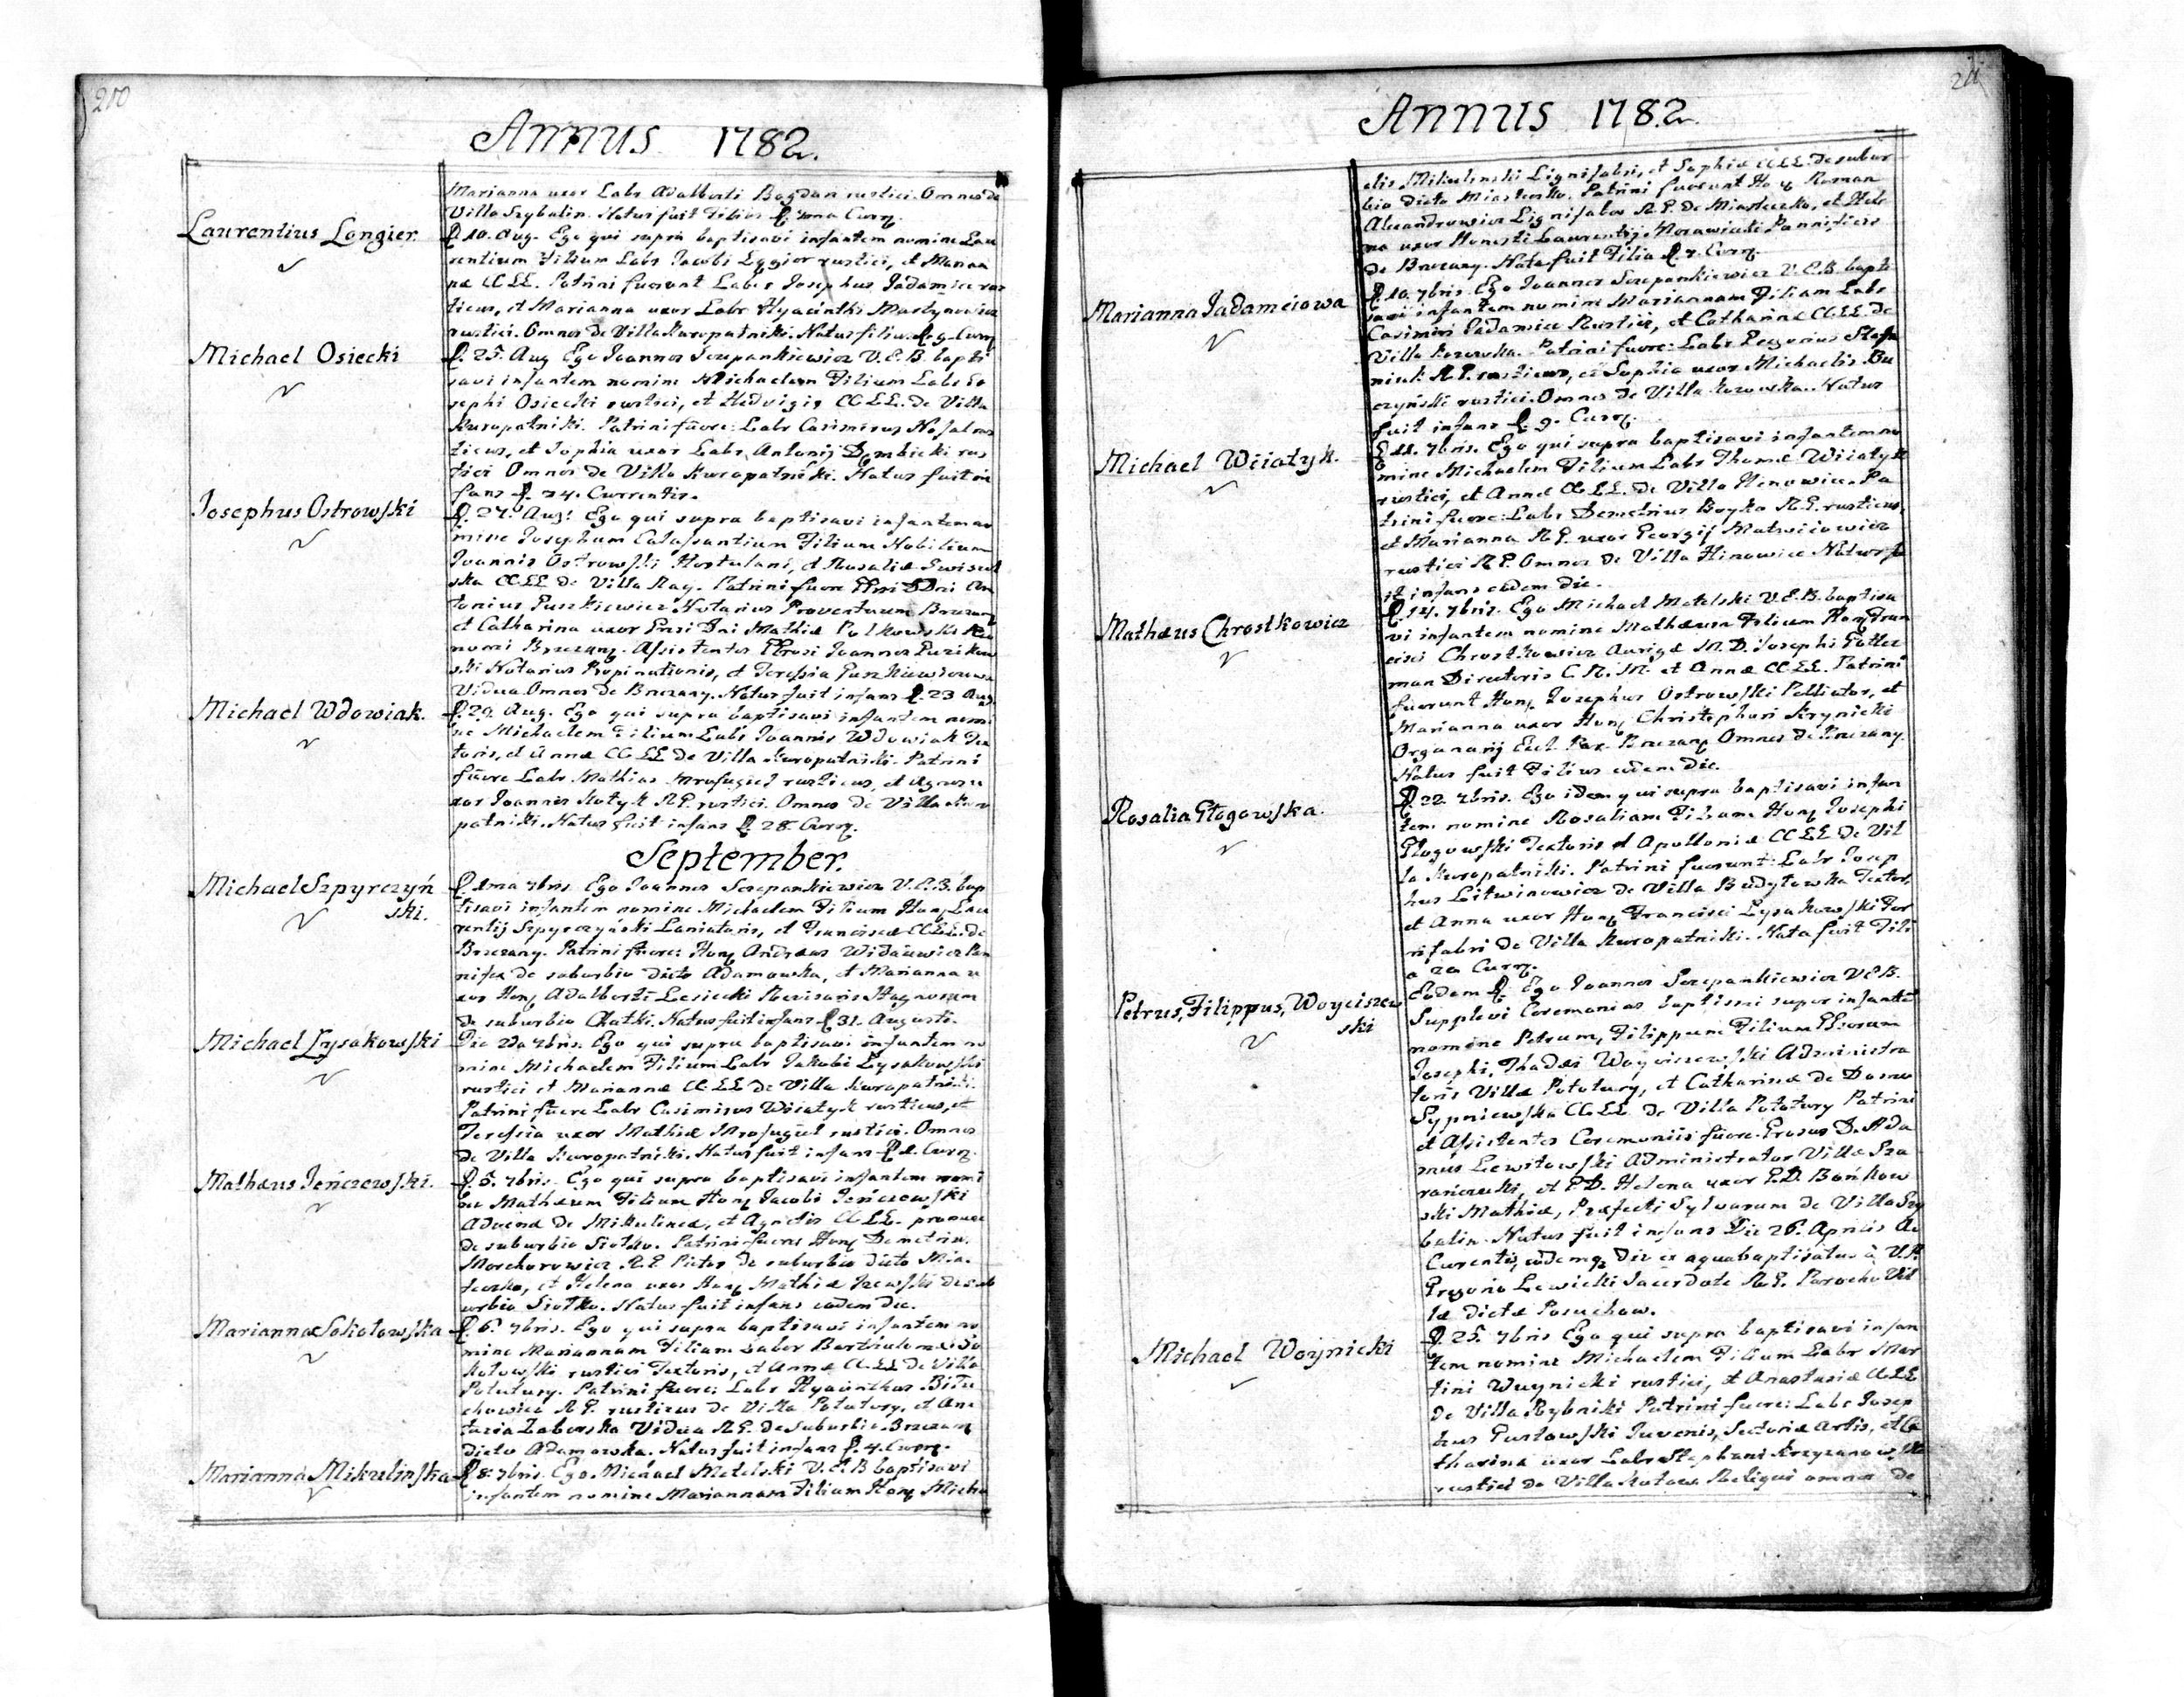 210
Annus 1782.
Marianna uxor Labr Adalberti Bogdan rustici. Omnes de
Villa Szybalin. Natus fuit Filius Curr.
Laurentius Longier.
10. Aug. Ego qui supra baptisavi infantem nomine Lau
rentium Filium Labr Jacobi rustici, et Marian
næ CCLL. Patrini fuerunt Labr Josephus Jadamiec rus
ticus, et Marianna uxor Labr Hyacinthi Martynowicz
rustici. Omnes de Villa Kuropatniki. Natus filius 9. Curr
Michael Osiecki
25. Aug Ego Joannes Szczepankiewicz V.E.B. bapti
savi infantem nomine Michaelem Filium Labr Jo
sephi Osiecki rustici, et Hedvigis CCLL. de Villa
Kuropatniki. Patrini fuere: Labr Casimirus Nosal rus
ticus, et Sophia uxor Labr Antonij Dembicki rus
tici Omnes de Villa Kuropatniki. Natus fuit in
fans 24. Currentis.
Josephus Ostrowski
27. Aug: Ego qui supra baptisavi infantem no
mine Josephum Calassantium Filium Nobilium
Joannis Ostrowski Hortulani, et Rosaliæ
ska CCLL de Villa Ray. Patrini fuere DDni An
tonius Puszkiewicz Notarius Proventuum Brzezany
et Catharina uxor Dni Mathiæ Polkowski
nomi Brzezany. Assistentes Joannes
ski Notarius Propinationis, et Teressia
Vidua Omnes de Brzezany. Natus fuit infans 23 Aug
Michael Wdowiak.
29. Aug. Ego qui supra baptisavi infantem nomi
ne Michaelem Filium Labr Joannis Wdowiak Tex
toris, et Annæ CCLL de Villa Kuropatniki. Patrini
fuere Labr Mathias Mrofugiel rusticus, et Agnes u
xor Joannis Kotyk R.G. rustici. Omnes de Villa Kuro
patniki. Natus fuit infans 28. Curr.
September.
Michael Szpyrczyń
ski.
1ma 7bris. Ego Joannes Szczepankiewicz V.E.B. bap
tisavi infantem nomine Michaelem Filium Hon Lau
rentij Szpyrczyński Laniatoris, et Franciscæ CCLL. de
Brzezany. Patrini fuere: Hon Andreas Widawicz Pan
nifex de suburbio dicto Adamowka, et Marianna u
xor Hon Adalberti Lesiecki Revisoris Stagnorum
de suburbio Chatki. Natus fuit infans 31. Augusti.
Michael Łysakowski
Die 2da 7bris. Ego qui supra baptisavi infantem no
mine Michaelem Filium Labr Jakobi Łysakowski
rustici et Mariannæ CCLL de Villa Kuropatniki.
Patrini fuere Labr Casimirus Wiiatyk rusticus, et
Teressia uxor Mathiæ Mrofugiel rustici. Omnes
de Villa Kuropatniki. Natus fuit infans 1. Curr.
Mathæus Jenczewski.
5. 7bris. Ego qui supra baptisavi infantem nomi
ne Mathæum Filium Hon Jacobi Jenczewski
Advenæ de Mikulince, et Agnetis CCLL.
de suburbio Siołko. Patrini fuere Hon Demetrius
Morchorowicz R.G. Pictor de suburbio dicto Mia
teczko, et Helena uxor Hon Mathiæ de sub
urbio Siołko. Natus fuit infans eodem die.
Marianna Sokołowska
6. 7bris. Ego qui supra baptisavi infantem no
mine Mariannam Filiam Labor Bartholomæi So
kołowski rustici Textoris, et Annæ CCLL de Villa
Potutury. Patrini fuere: Labr Hyacinthus
chowicz R.G. rusticus de Villa Potutory, et Ana
tazia Zaborska Vidua R.G. de suburbio Brzezany
dicto Adamowka. Natus fuit infans 4. Curr.
Marianna Mikulinska
8. 7bris. Ego Michael Metelski V.E.B baptisavi
infantem nomine Mariannam Filiam Hon Micha
211
Annus 1782.
elis Mikulinski Lignifabri, et Sophiæ CCLL. de subur
bio dicto Miasteczko. Patrini fuerunt Ho Roman
Alexandrowicz Lignifaber R.G. de Miasteczko, et Hele
na uxor Honesti Laurentij Morawiecki Pannificis
de Brzezany. Nata fuit Filia 7. Curr.
Marianna Jadamciowa
10. 7bris. Ego Joannes Szczepankiewicz V.E.B. bapti
savi infantem nomine Mariannam Filiam Labr
Casimiri Jadamiec Rustici, et Catharinæ CCLL. de
Villa Kozowka. Patrini fuere: Labr Gregorius Stefa
niuk R.G. rusticus, et Sophia uxor Michaelis Bu
czyński rustici. Omnes de Villa Kozowka. Natus
fuit infans 9. Curr.
Michael Wiiatyk.
11. 7bris. Ego qui supra baptisavi infantem no
mine Michaelem Filium Labr Thomæ Wiiatyk
rustici, et Annæ CCLL. de Villa Hinowice. Pa
trini fuere: Labr Demetrius Boyko R.G. rusticus,
et Marianna R.G. uxor Georgij Matwiiowicz
rustici R.G. Omnes de Villa Hinowice Natus fu
it infans eodem die.
Mathæus Chrostkowicz
14. 7bris. Ego Michael Metelski V.E.B. baptisa
vi infantem nomine Mathæum Filium Hon Fran
cisci Chrostkowicz Aurigæ M.D. Josephi
man Directoris C.R.M. et Annæ CCLL. Patrini
fuerunt Hon Josephus Ostrowski Pelliator, et
Marianna uxor Hon Christophori Krynicki
Organarij Eccl. Par. Brzezany Omnes de Brzezany.
Natus fuit Filius eodem die.
Rosalia Głogowska.
22. 7bris. Ego idem qui supra baptisavi infan
tem nomine Rosaliam Filiam Hon Josephi
Głogowski Textoris et Apolloniæ CCLL de Vil
la Kuropatniki. Patrini fuerunt: Labr Josep
hus Litwinowicz de Villa Budyłowka Textor,
et Anna uxor Hon Francisci Łysakowski Fer
rifabri de Villa Kuropatniki. Nata fuit Fili
a 20 Curr.
Petrus, Filippus, Woyciszew
ski
Eodem Ego Joannes Szczepankiewicz V.E.B.
Supplevi Ceremonias baptismi super infante
nomine Petrum, Filippum Filium
Josephi, Thadei Woyciszewski Administra
toris Villæ Potutury, et Catharinæ de Domo
Sypniewska CCLL. de Villa Potutury Patrini
et Assistentes Ceremoniis fuere. D. Ada
mus Lewitowski Administrator Villæ
et D. Helena uxor Bońkow
ski Mathiæ, Præfecti Sylvarum de Villa Szy
balin. Natus fuit infans Die 26. Aprilis
Curentis, eodemq Die ex aqua baptisatus à V.R.
Gregorio Lewicki Sacerdote R.G. Parocho Vil
læ dictæ Posuchow.
Michael Woynicki
25. 7bris Ego qui supra baptisavi infan
tem nomine Michaelem Filium Labr Mar
tini Wuynicki rustici, et Anastasiæ CCLL
de Villa Rybniki Patrini fuere: Labr Josep
hus Gurtowski Juvenis, Sutoriæ Artis, et Ca
tharina uxor Labr Stephani Krzyzanowski
rustici de Villa Kotow. Reliqui omnes de